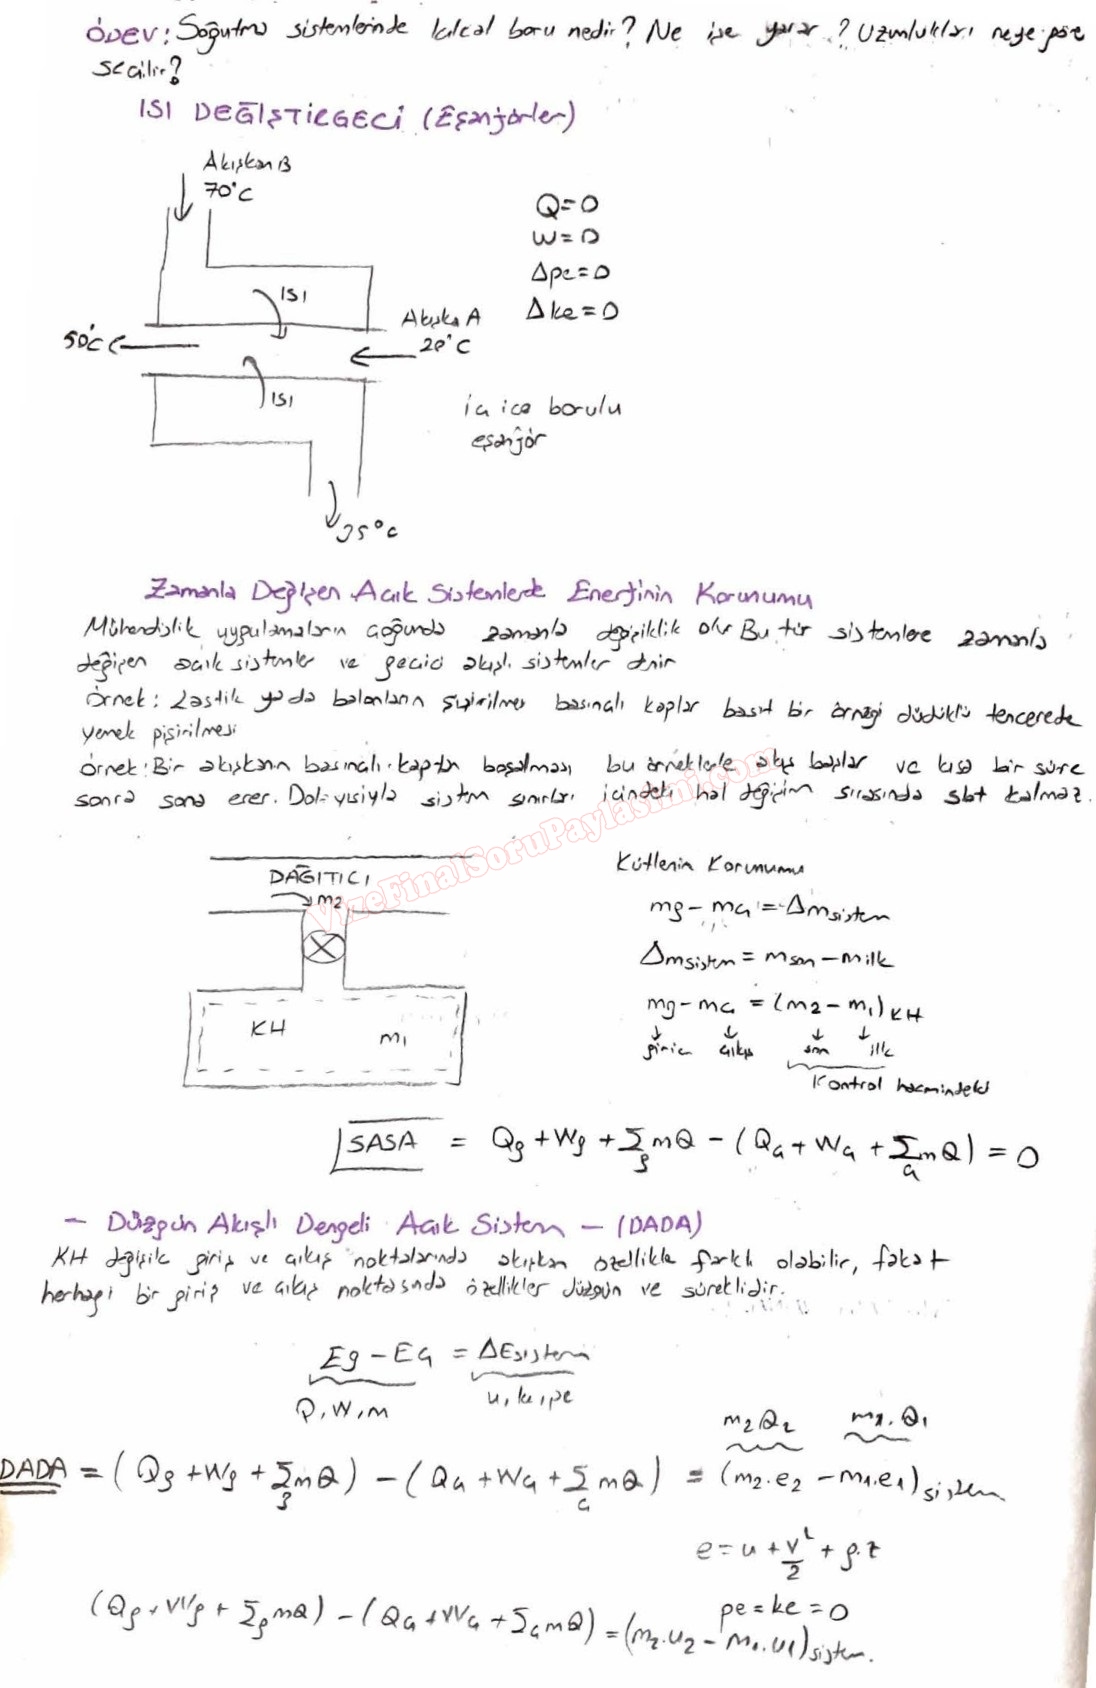 ÖDEV: Soğutma sistemlerinde kılcal boru nedir? Ne işe yarar? Uzunlukları neye göre
seçilir?
ISI DEĞİŞTİRGECİ (Eşanjörler)
Akışkan B
70°C
Q=0
W=0
Δpe=0
Δke=0
ISI
Akışka A
50°C
20°C
ISI
iç içe borulu
eşanjör
35°C
Zamanla Değişen Açık Sistemlerde Enerjinin Korunumu
Mühendislik uygulamaların çoğunda zamanla değişiklik olur Bu tür sistemlere zamanla
değişen açık sistemler ve geçici akışlı sistemler denir
Örnek: Lastik yada balonların şişirilmesi basınçlı kaplar basit bir örneği düdüklü tencerede
yemek pişirilmesi
Örnek: Bir akışkanın basınçlı kaptan boşalması bu örneklerle akış başlar ve kısa bir süre
sonra sona erer. Dolayısıyla sistem sınırları içindeki hal değişim sırasında sbt kalmaz.
VizeFinalSoruPaylasimi.com
DAĞITICI
m2
KH
m1
Kütlenin Korunumu
mg - mç = Δmsistem
Δmsistem = mson - milk
mg - mç = (m2 - m1)KH
giriş çıkış son ilk
Kontrol hacmindeki
SASA = Qg + Wg + Σg mθ - (Qç + Wç + Σç mθ) = 0
- Düzgün Akışlı Dengeli Açık Sistem - (DADA)
KH değişik giriş ve çıkış noktalarında akışkan özellikle farklı olabilir, fakat
herhagi bir giriş ve çıkış noktasında özellikler düzgün ve süreklidir.
Eg - Eç = ΔEsistem
Q, W, m
u, ke, pe
m2θ2 m1.θ1
DADA = (Qg + Wg + Σg mθ) - (Qç + Wç + Σç mθ) = (m2.e2 - m1.e1)sistem
e = u + V²/2 + g.z
pe = ke = 0
(Qg + Wg + Σg mθ) - (Qç + Wç + Σç mθ) = (m2.u2 - m1.u1)sistem.